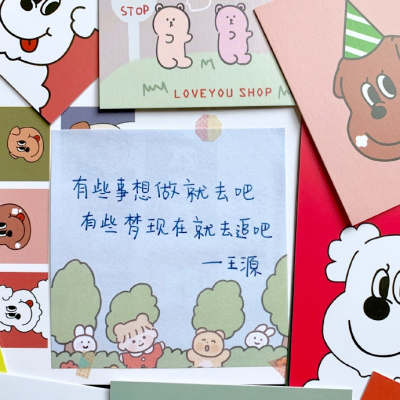 STOP
LOVEYOU SHOP
有些事想做就去吧
有些梦现在就去追吧
—王源